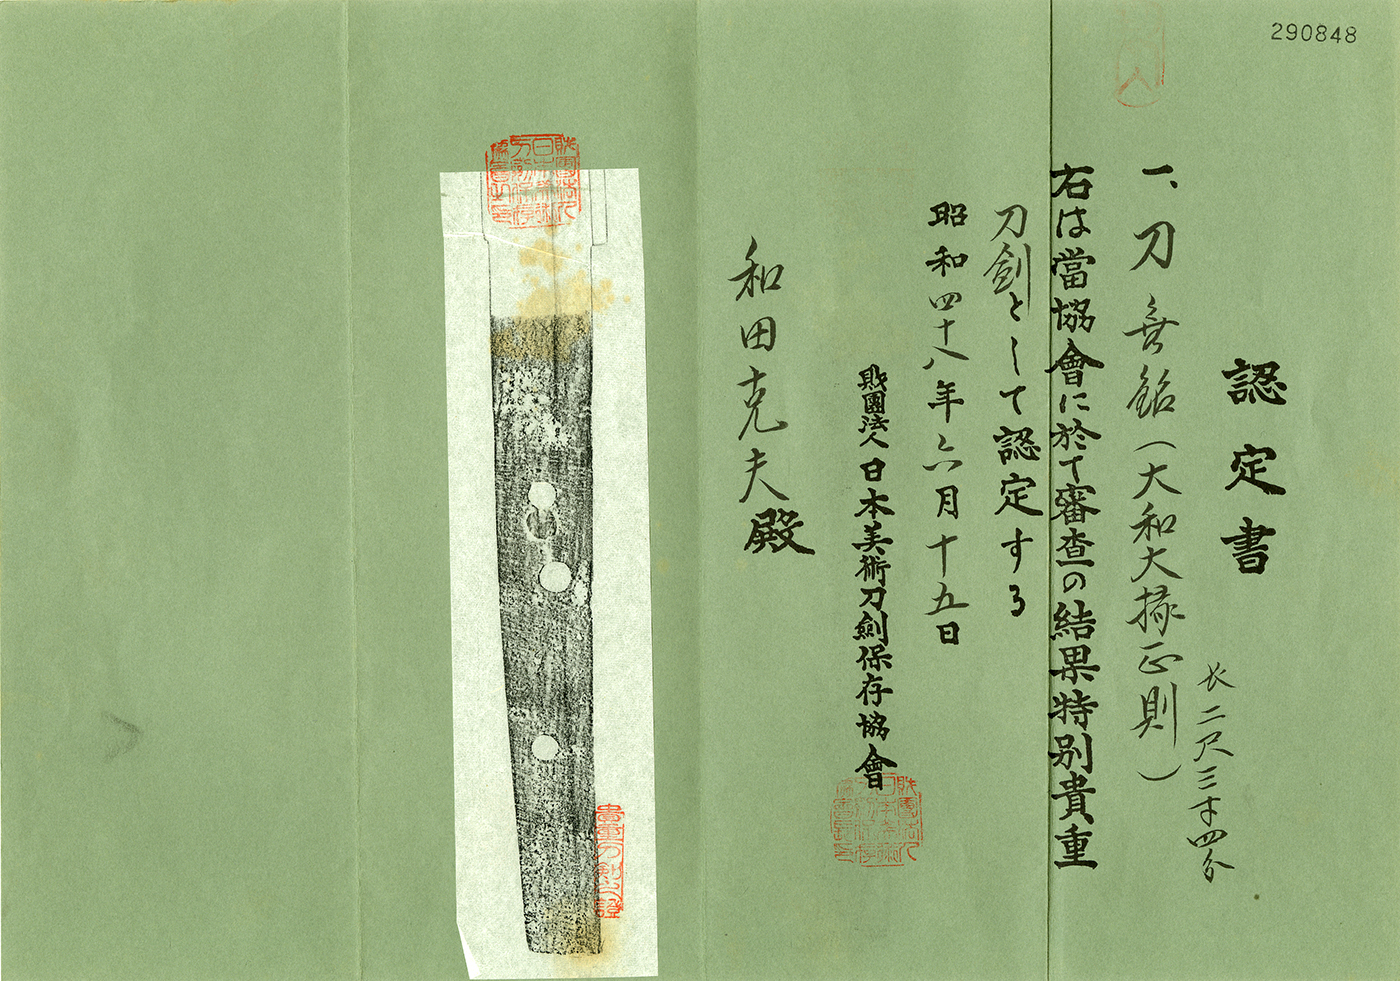 290848
認定書
一、刀 無銘(大和大掾正則)
長二尺三寸四分
右は當協會に於て審査の結果特別貴重
刀劍として認定する
昭和四十八年六月十五日
財團法人日本美術刀劍保存協會
和田克夫殿
財團法人日本美術刀劍保存協會之印
貴重刀剣之證